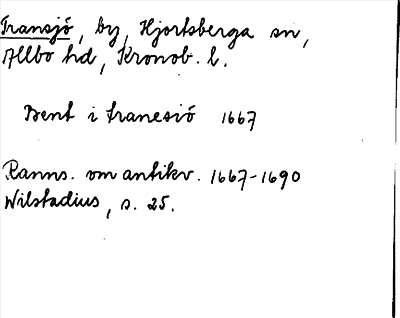 Transjö, by, Hjortsberga sn,
Allbo hd, Kronob. l.
Bent i tranesiö 1667
Ranns. om antikv. 1667-1690
Wilstadius, s. 25.